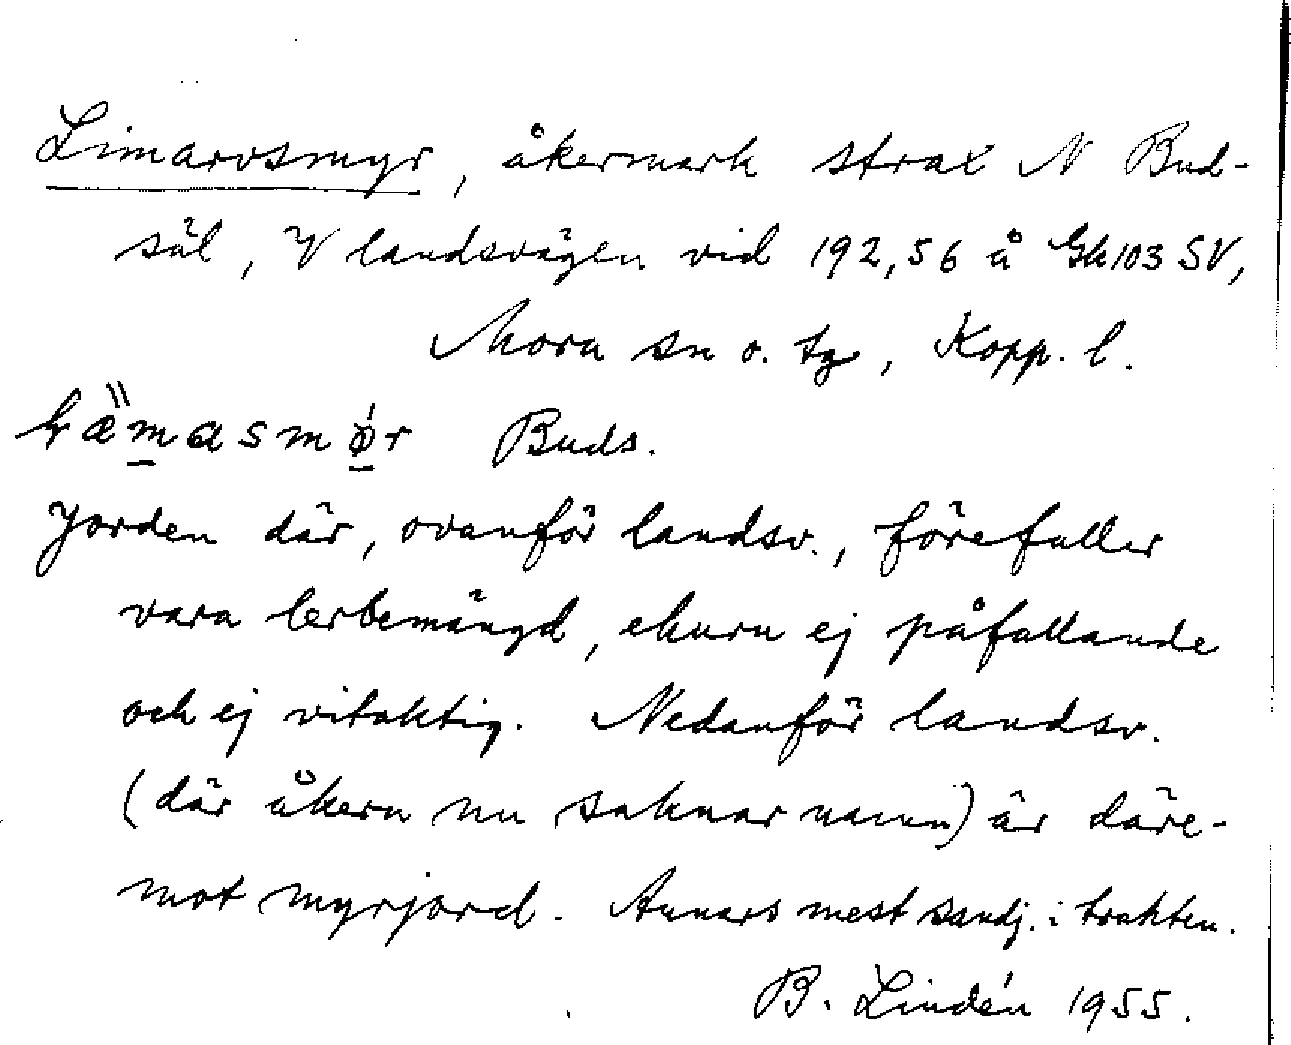 Limarvsmyr, åkermark strax N Bud-
säl, V landsvägen vid 192,56 å Gk103 SV,
Mora sn o. tg, Kopp. l.
Buds.
Jorden där, ovanför landsv., förefaller
vara lerbemängd, ehuru ej påfallande
och ej vitaktig. Nedanför landsv.
(där åkern nu saknar namn) är däre-
mot myrjord. Annars mest sandj. i trakten.
B. Lindén 1955.